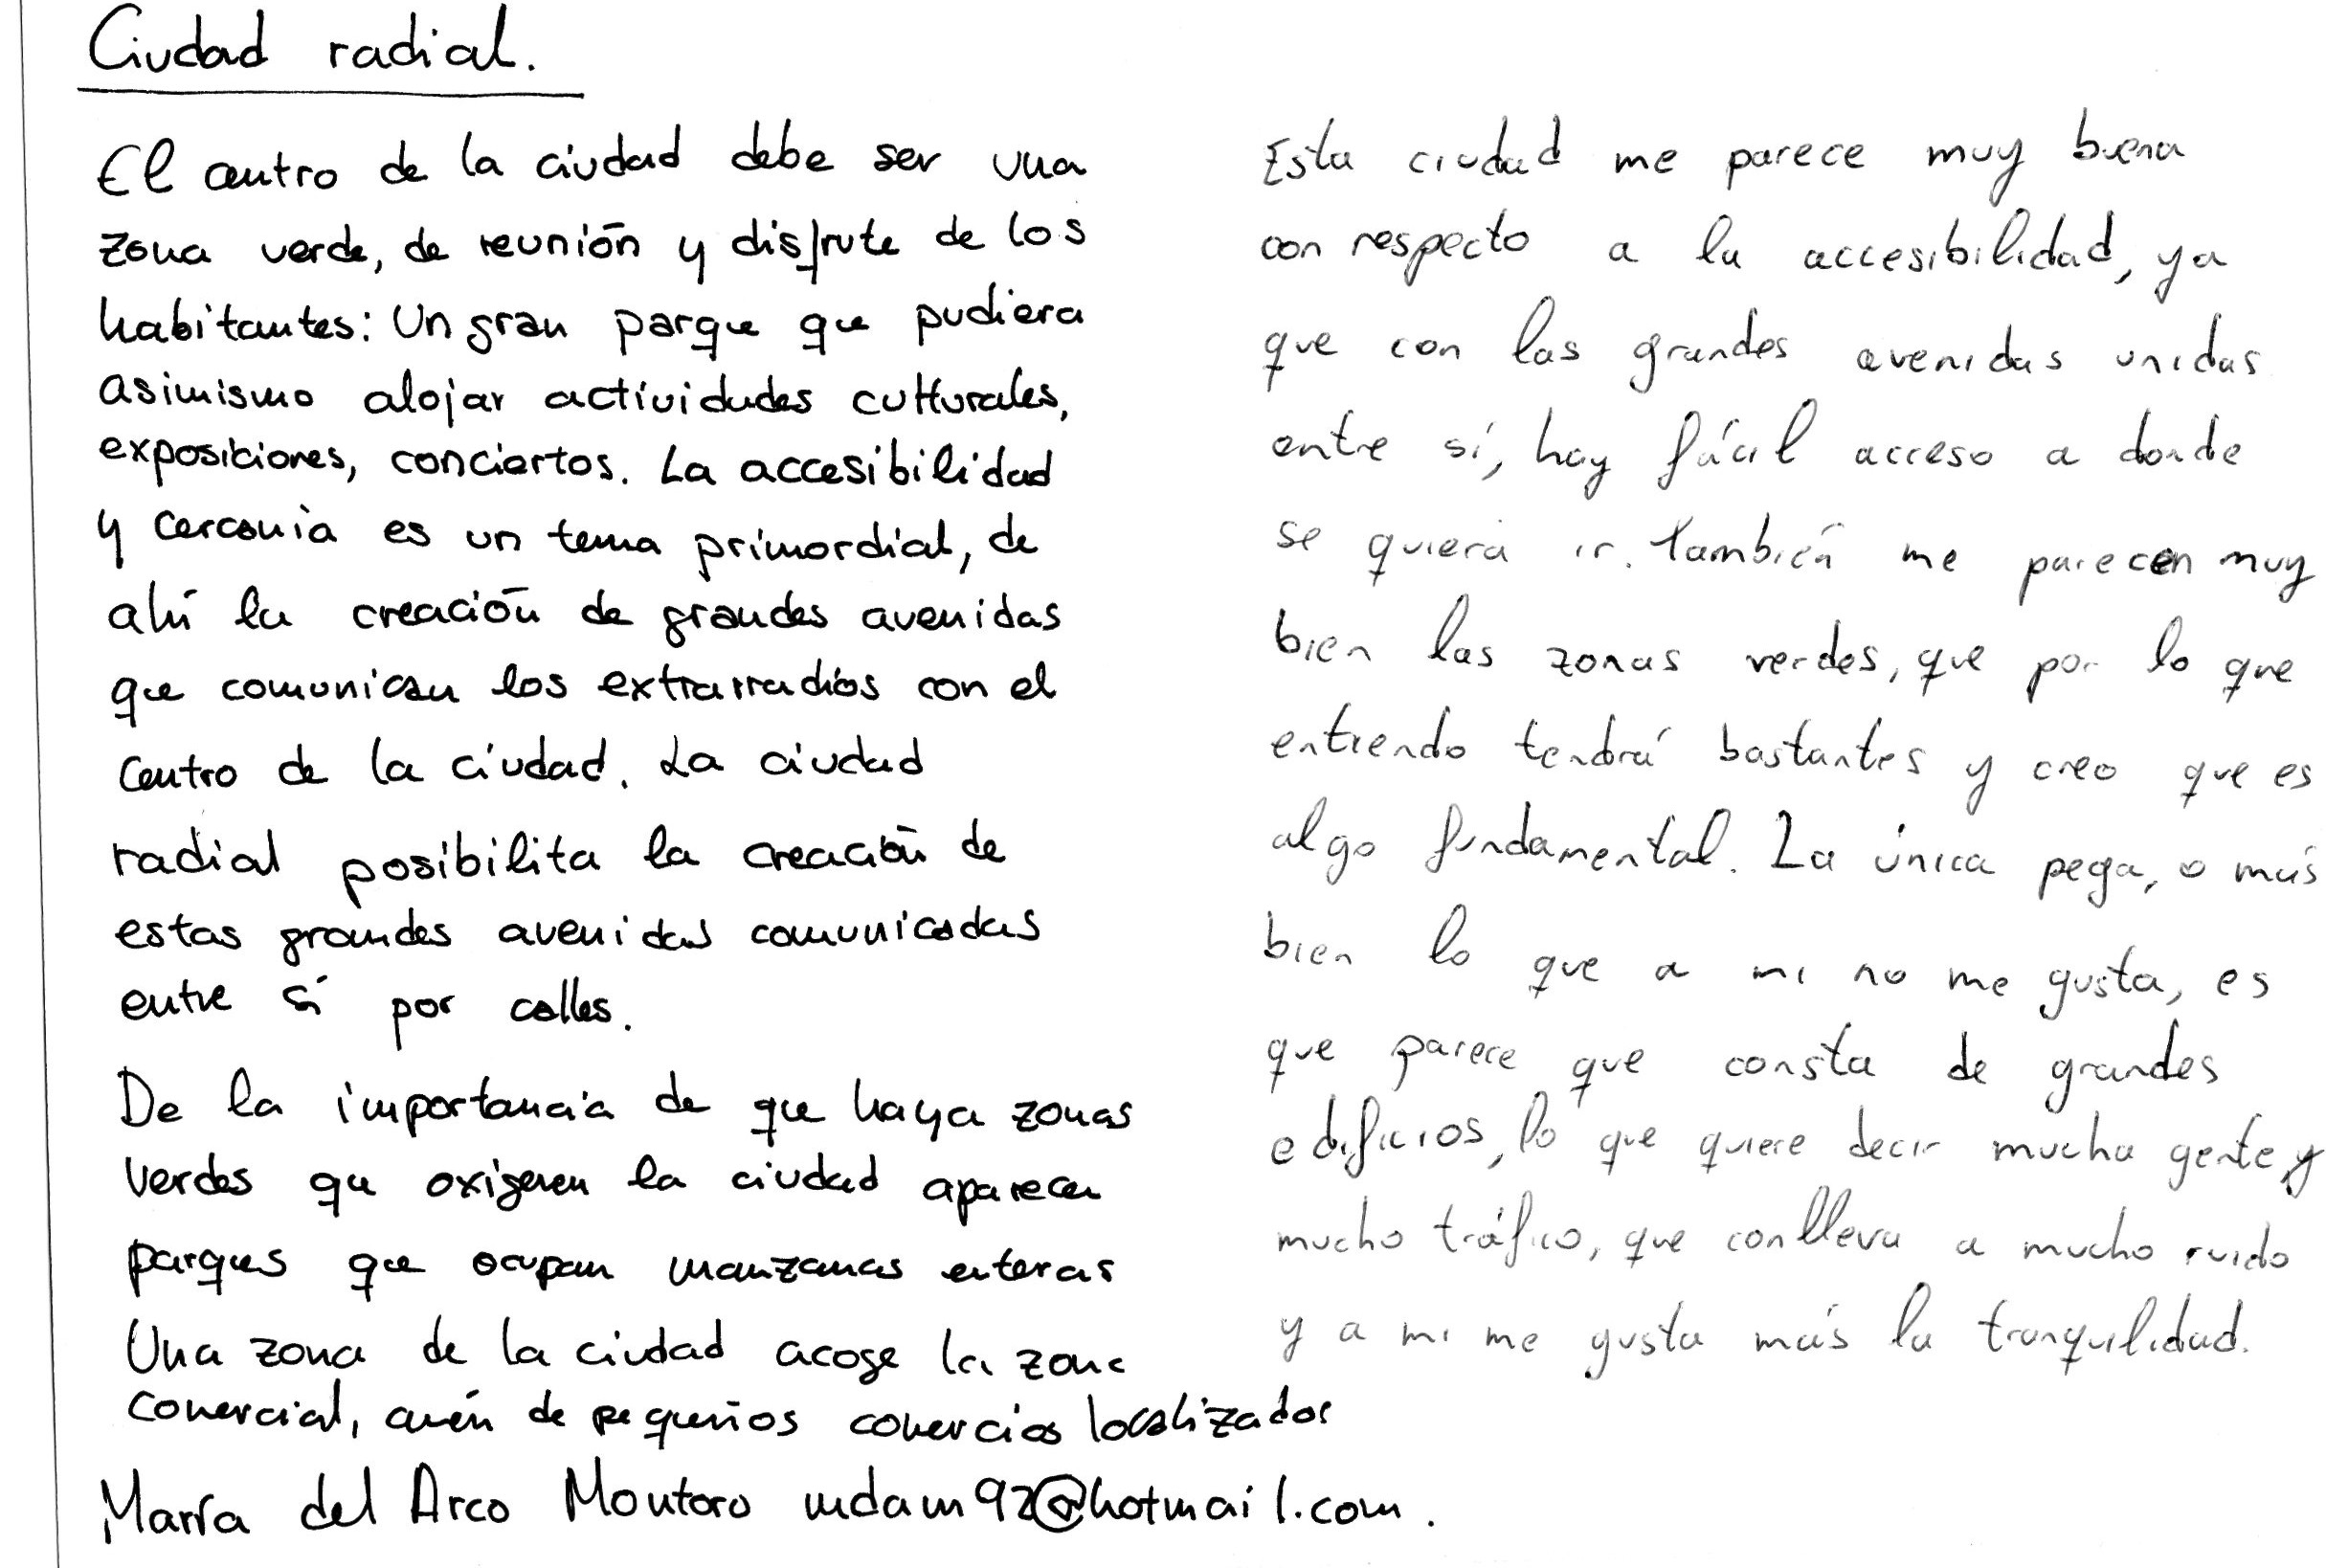 Ciudad radial.
El centro de la ciudad debe ser una
zona verde, de reunión y disfrute de los
habitantes: Un gran parque que pudiera
asimismo alojar actividades culturales,
exposiciones, conciertos. La accesibilidad
y cercania es un tema primordial, de
ahí la creación de grandes avenidas
que comunican los extrarradios con el
centro de la ciudad. La ciudad
radial posibilita la creación de
estas grandes avenidas comunicadas
entre sí por calles.
De la importancia de que haya zonas
verdes que oxigenen la ciudad aparecen
parques que ocupan manzanas enteras
Una zona de la ciudad acoge la zona
comercial, amén de pequeños comercios localizados
María del Arco Montoro mdam92@hotmail.com.
Esta ciudad me parece muy buena
con respecto a la accesibilidad, ya
que con las grandes avenidas unidas
entre sí, hay fácil acceso a donde
se quiera ir. También me parecen muy
bien las zonas verdes, que por lo que
entiendo tendrá bastantes y creo que es
algo fundamental. La única pega, o más
bien lo que a mi no me gusta, es
que parece que consta de grandes
edificios, lo que quiere decir mucha gente y
mucho tráfico, que conlleva a mucho ruido
y a mi me gusta más la tranquilidad.